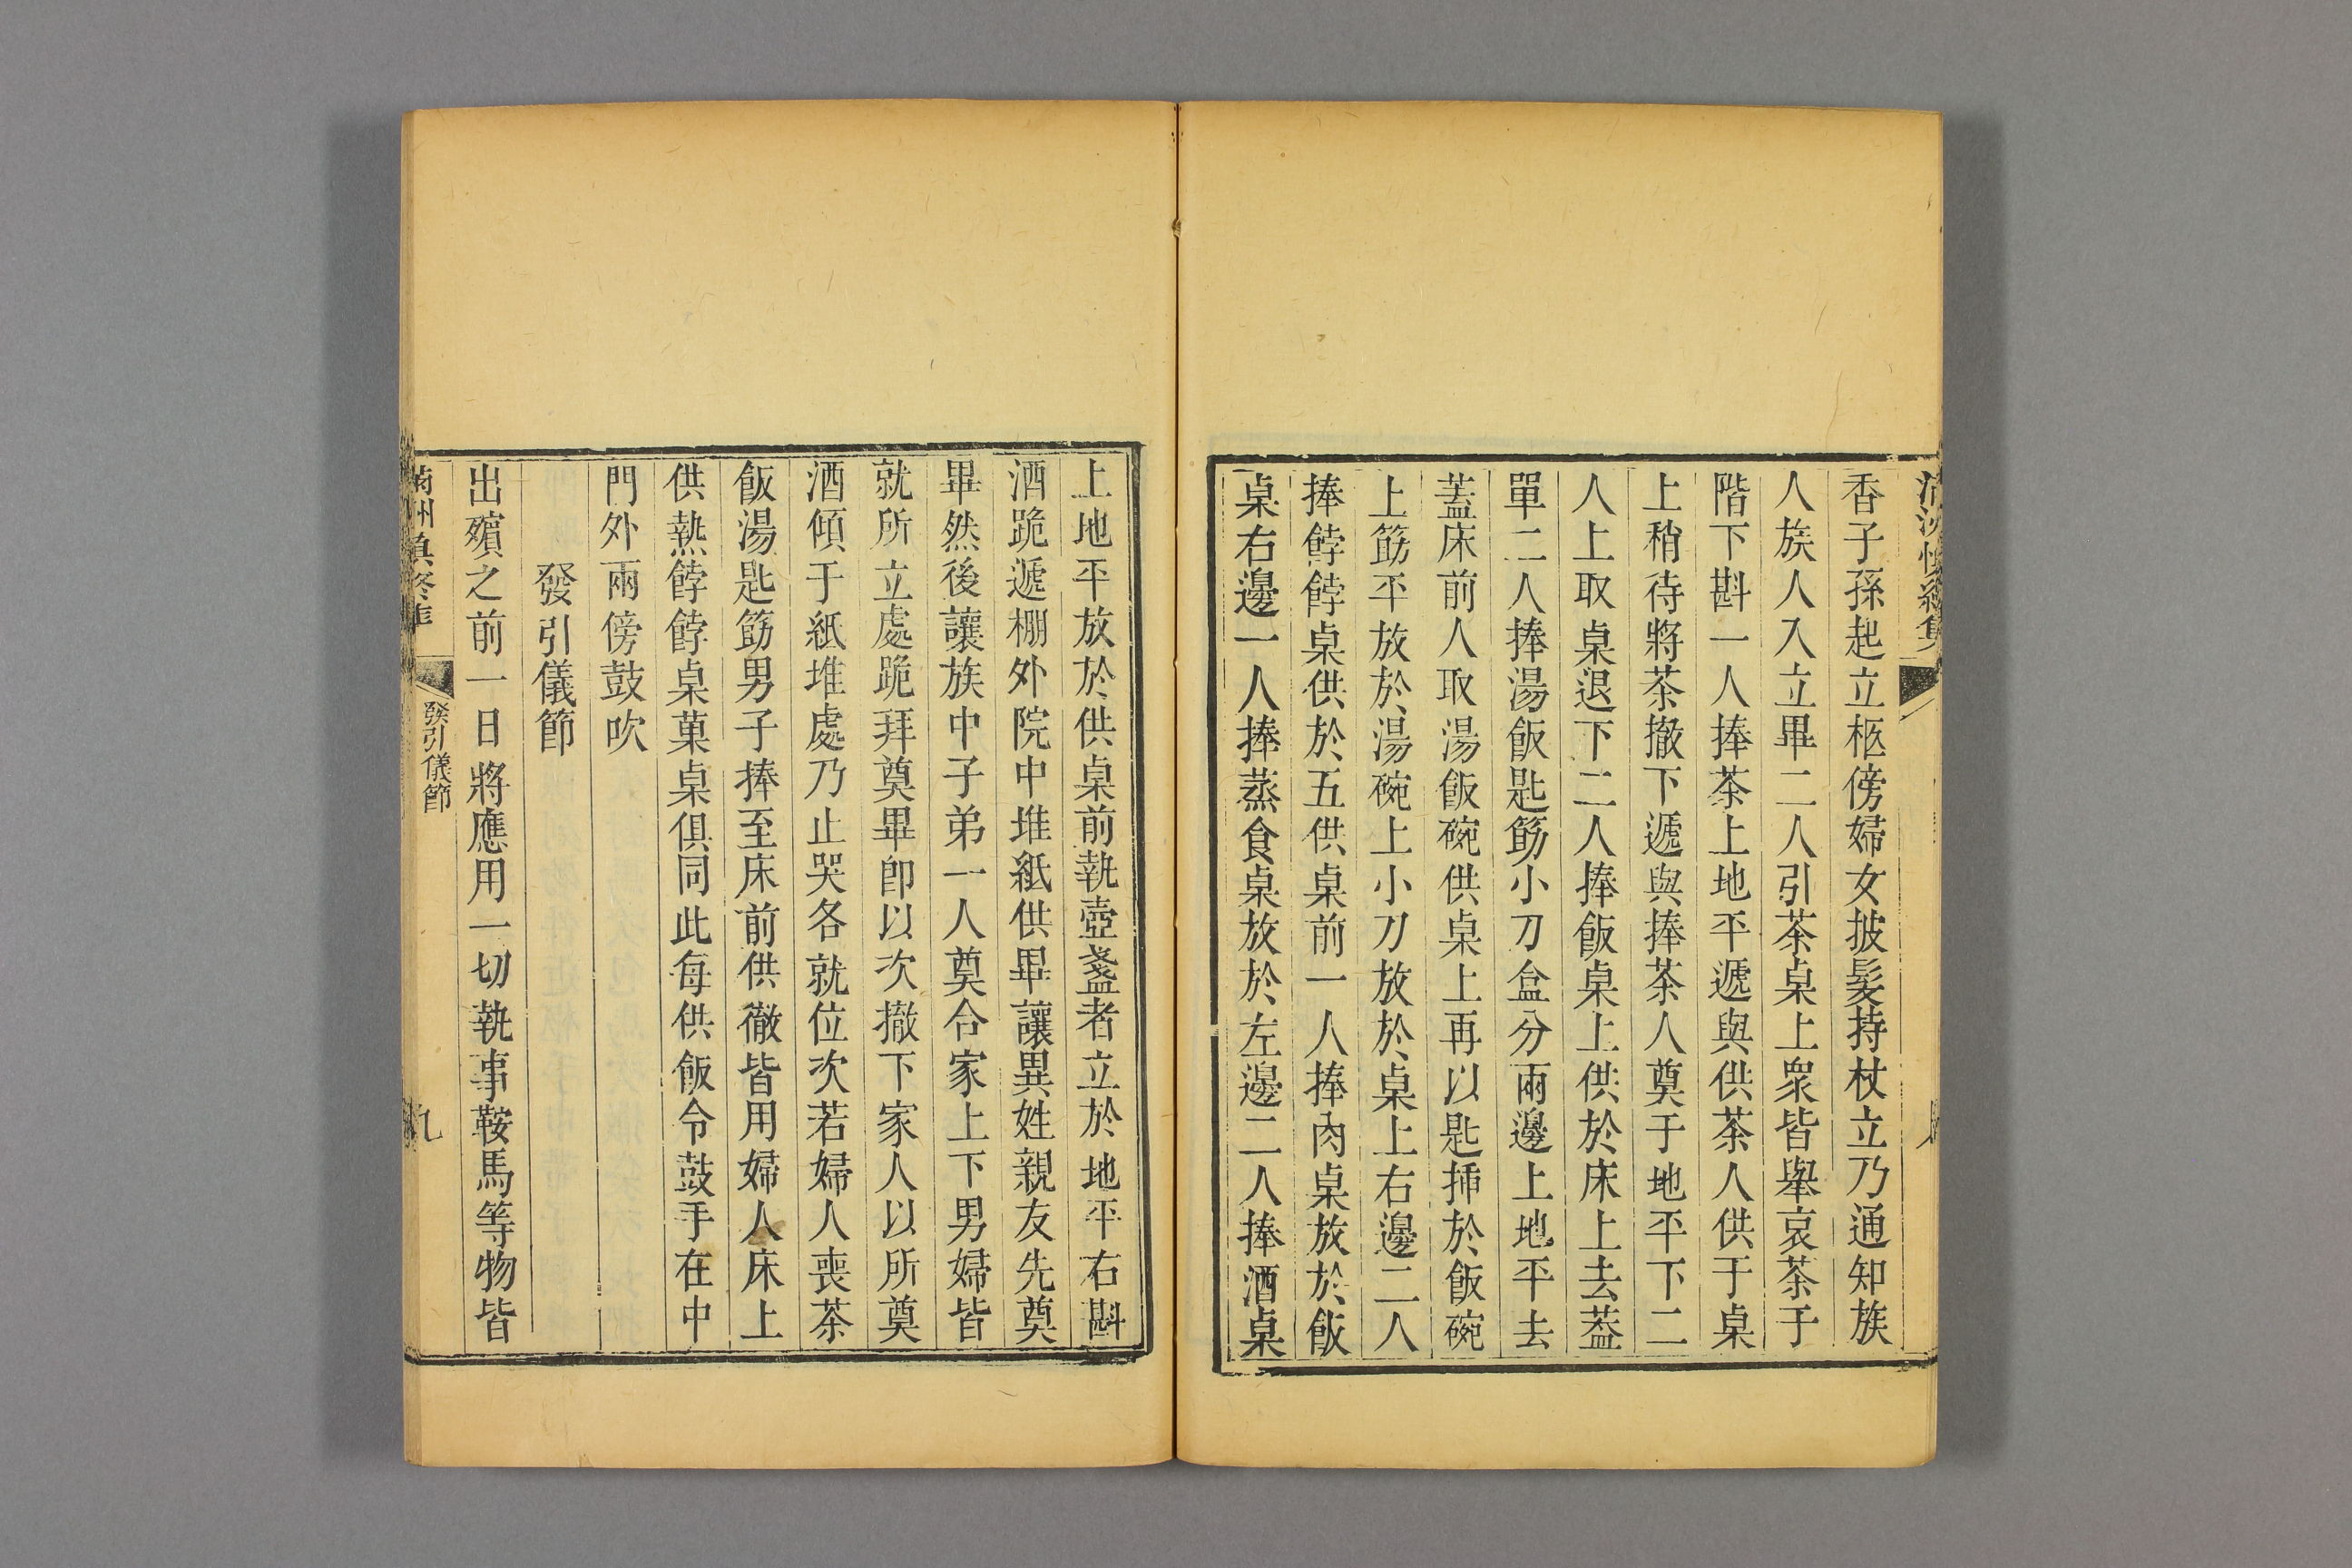 香子孫起立柩傍婦女披髮持杖立乃通知族
人族人入立畢二人引茶桌上衆皆舉哀茶于
階下斟一人捧茶上地平遞與供茶人供于桌
上稍待將茶撤下遞與捧茶人奠于地平下二
人上取桌退下二人捧飯桌上供於床上去蓋
單二人捧湯飯匙筯小刀盒分兩邊上地平去
蓋床前人取湯飯碗供桌上再以匙揷於飯碗
上筯平放於湯碗上小刀放於桌上右邊二人
捧餑餑桌供於五供桌前一人捧肉桌放於飯
桌右邊一人捧蒸食桌放於左邊二人捧酒桌
上地平放於供桌前執壺盞者立於地平右斟
酒跪遞棚外院中堆紙供畢讓異姓親友先奠
畢然後讓族中子弟一人奠合家上下男婦皆
就所立處跪拜奠畢卽以次撤下家人以所奠
酒傾于紙堆處乃止哭各就位次若婦人喪茶
飯湯匙筯男子捧至床前供徹皆用婦人床上
供熱餑餑桌菓桌俱同此每供飯令鼓手在中
門外兩傍鼓吹
發引儀節
出殯之前一日將應用一切執事鞍馬等物皆
發引儀節
九